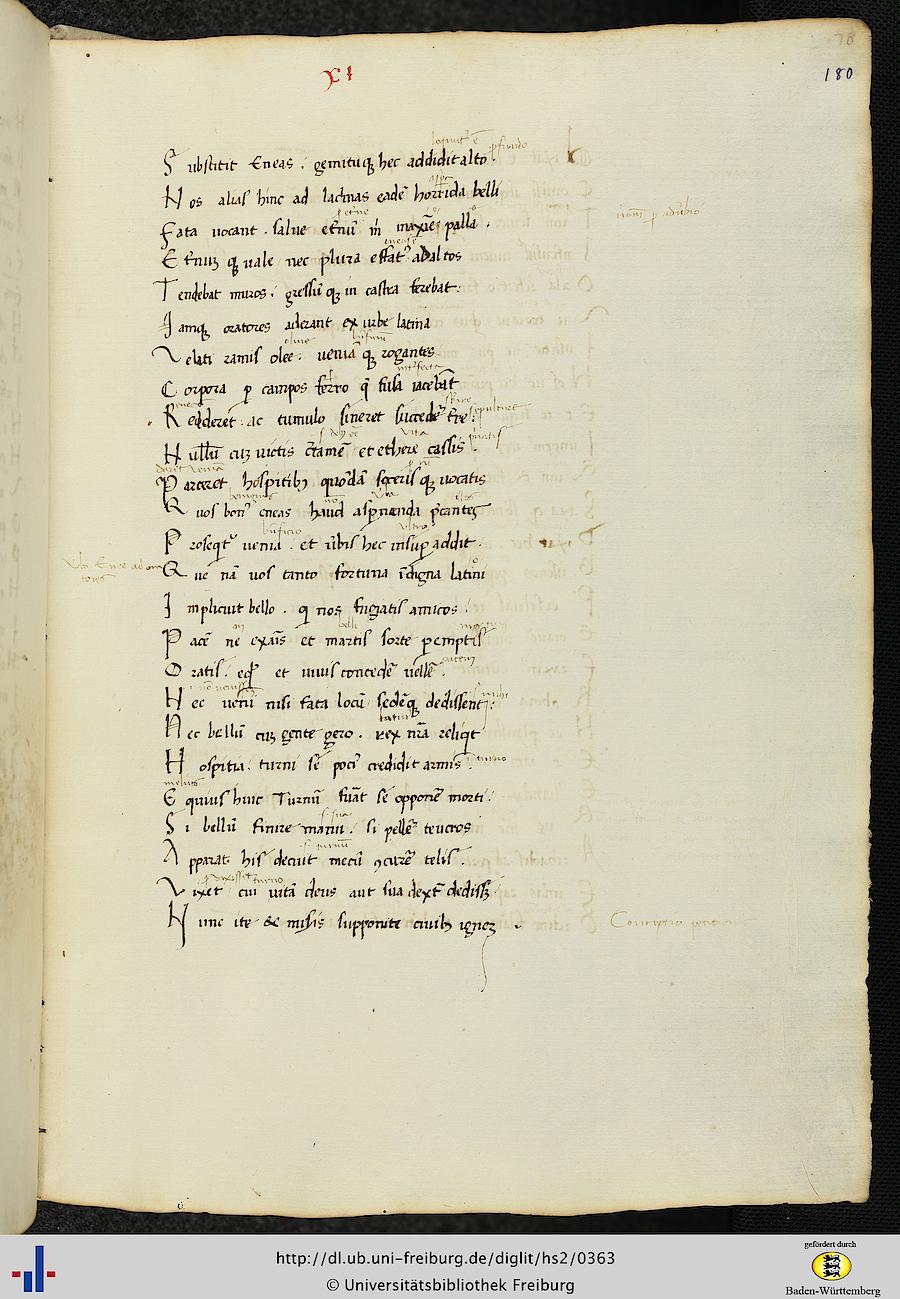 78
XI
180
Substitit Eneas . gemituq; hec addidit alto .
Nos alias hinc ad lacrimas eadē horrida belli
Fata uocant . salue eťnū m̄ maxīe pallā .
Eťnuꝫ q; uale nec plura effat⁹ ad altos
Tendebat muros . gressū q; in castra ferebat .
Iamq; oratores aderant ex urbe latina
Velati ramis olee . ueniā q; rogantes
Corpora ꝑ campos ferro q̄ fusa iacebāt
Redderet . ac tumulo sineret succedeř tře .
Nullū cuꝫ uictis c̄tamē et ethere cassis .
Parceret hospitibꝫ quondā soceris q; uocatis
Quos bon⁹ eneas haud asꝑnenda p̄cantes
Prosequit᷑ uenia . et ūbis hec insuꝑ addit .
Que nā uos tanto fortuna īdigna latini
Implicuit bello . qͥ nos fugiatis amicos .
Pacē me exaīs et martis sorte ꝑemptis
Oratis . eqͥdē et uiuis concedeř uellē .
Nec uenī nisi fata locū sedēq; dedissent .
Nec bellū cuꝫ gente gero . rex nrā reliqͥt
Hospitia . turni se poci⁹ credidit armis
Equius huic Turnū fuāt se opponeř morti .
Si bellū finire manu . si pelleř teucros
Apparat . his decuit mecū ꝯcureř telis .
Vixet cui uitā deus aut sua dext̄ dediss; .
Nunc ite & misis supponite ciuibꝫ ignez
http://dl.ub.uni-freiburg.de/diglit/hs2/0363
© Universitätsbibliothek Freiburg
gefördert durch
Baden-Württemberg